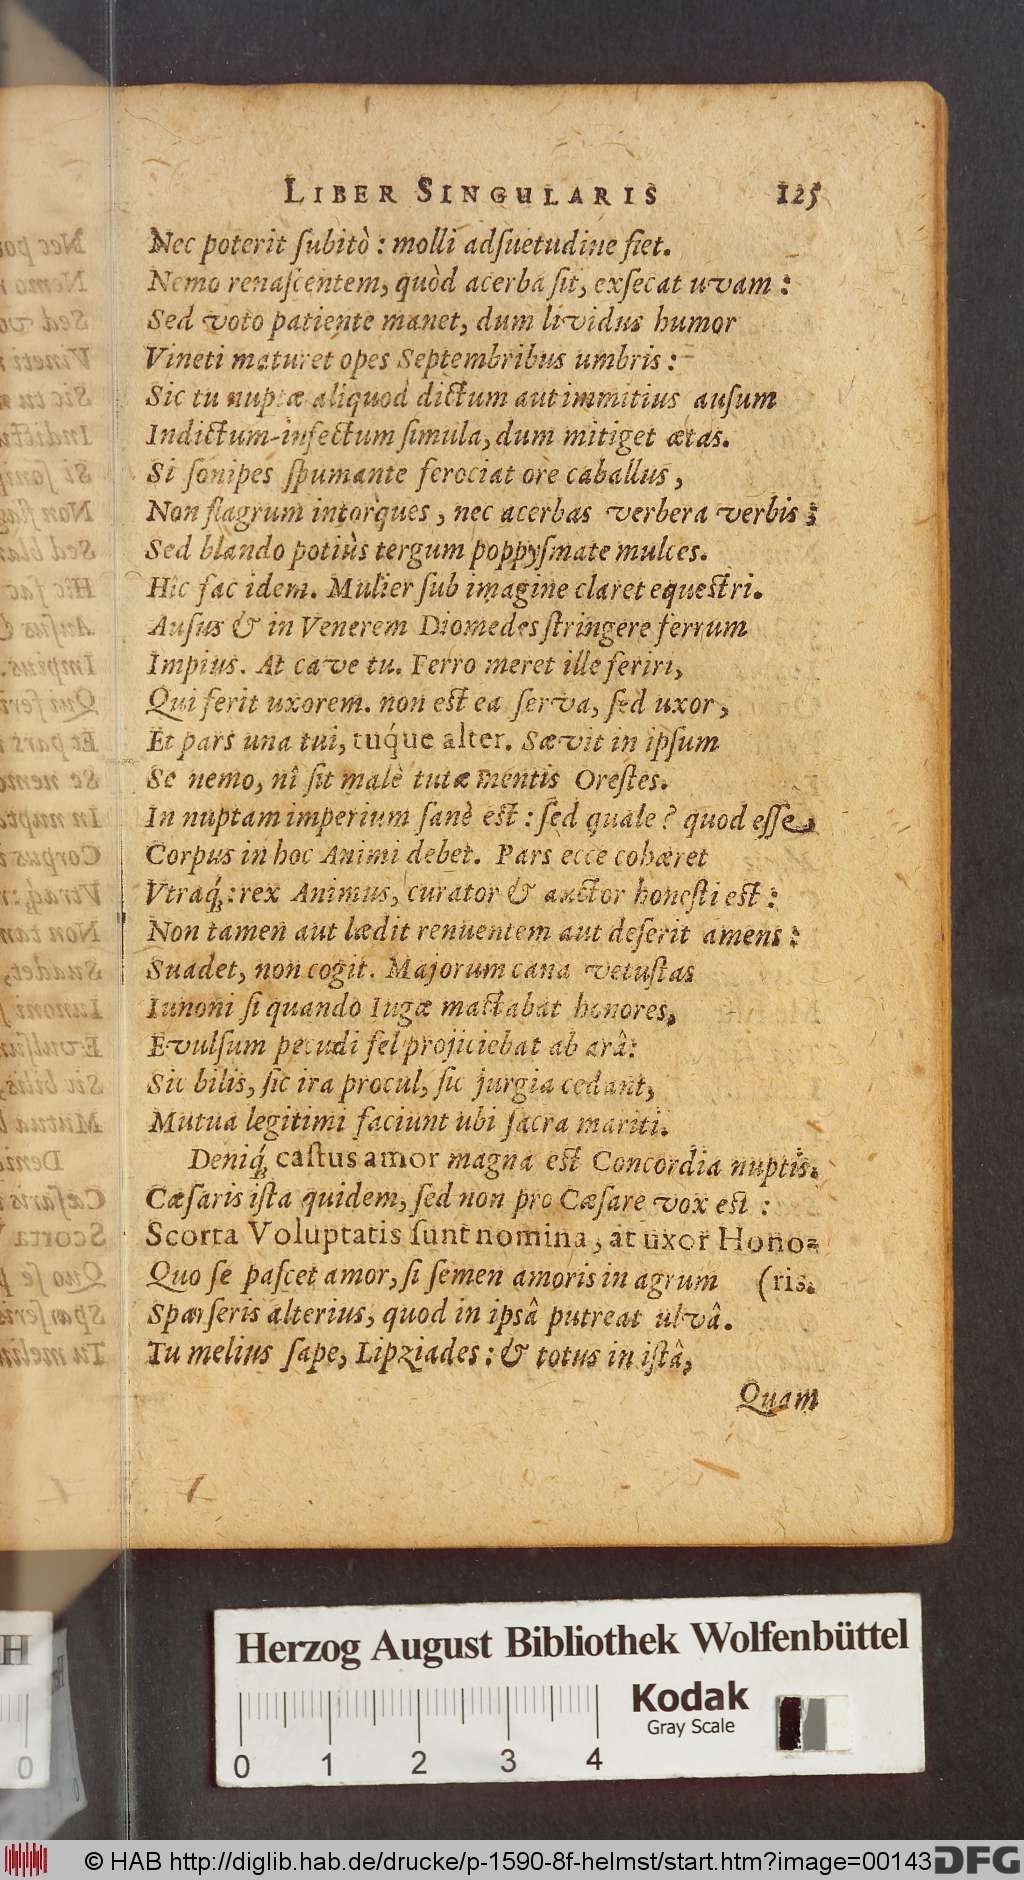 LIBER SINGULARIS 125
Nec poterit ſubitò : molli adſuetudine fiet.
Nemo renaſcentem, quòd acerba ſit, exſecat uvam :
Sed voto patiente manet, dum lividus humor
Vineti maturet opes Septembribus umbris :
Sic tu nuptæ aliquod dictum aut immitius auſum
Indictum-infectum ſimula, dum mitiget ætas.
Si ſonipes ſpumante ferociat ore caballus,
Non flagrum intorques, nec acerbas verbera verbis ;
Sed blando potiùs tergum poppyſmate mulces.
Hîc fac idem. Mulier ſub imagine claret equeſtri.
Auſus & in Venerem Diomedes ſtringere ferrum
Impius. At cave tu. Ferro meret ille feriri,
Qui ferit uxorem. non eſt ea ſerva, ſed uxor,
Et pars una tui, tuq́ue alter. Sævit in ipſum
Se nemo, nî ſit malè tutæ mentis Oreſtes.
In nuptam imperium ſanè eſt : ſed quale ? quod eſſe
Corpus in hoc Animi debet. Pars ecce cohæret
Vtraq́; : rex Animus, curator & auctor honeſti eſt :
Non tamen aut lædit renuentem aut deſerit amens :
Suadet, non cogit. Majorum cana vetuſtas
Iunoni ſi quando Iugæ mactabat honores,
Evulſum pecudi fel projiciebat ab arâ:
Sic bilis, ſic ira procul, ſic jurgia cedant,
Mutua legitimi faciunt ubi ſacra mariti.
Deniq́; caſtus amor magna eſt Concordia nuptis.
Cæſaris iſta quidem, ſed non pro Cæſare vox eſt :
Scorta Voluptatis ſunt nomina, at uxor Hono-
Quo ſe paſcet amor, ſi ſemen amoris in agrum (ris.
Sparſeris alterius, quod in ipſâ putreat ulvâ.
Tu melius ſape, Lipziades : & totus in iſtâ,
Quam
Herzog August Bibliothek Wolfenbüttel
Kodak
Gray Scale
0 1 2 3 4
© HAB http://diglib.hab.de/drucke/p-1590-8f-helmst/start.htm?image=00143
DFG